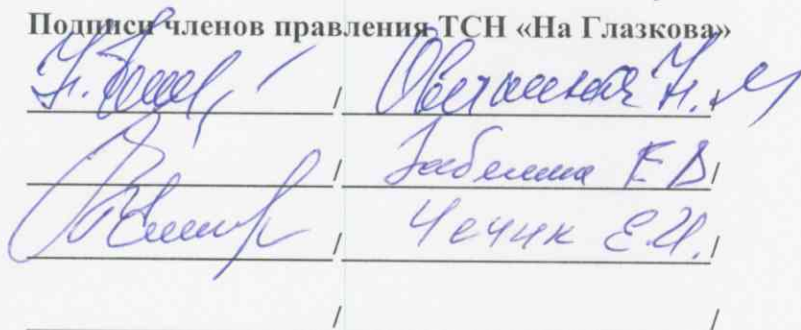 Подписи членов правления ТСН «На Глазкова»
/ Н. М /
/ Забелина Е В /
/ Чечик Е.И. /
/ /